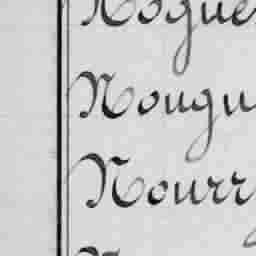 Nogue
Nougu
Nourr